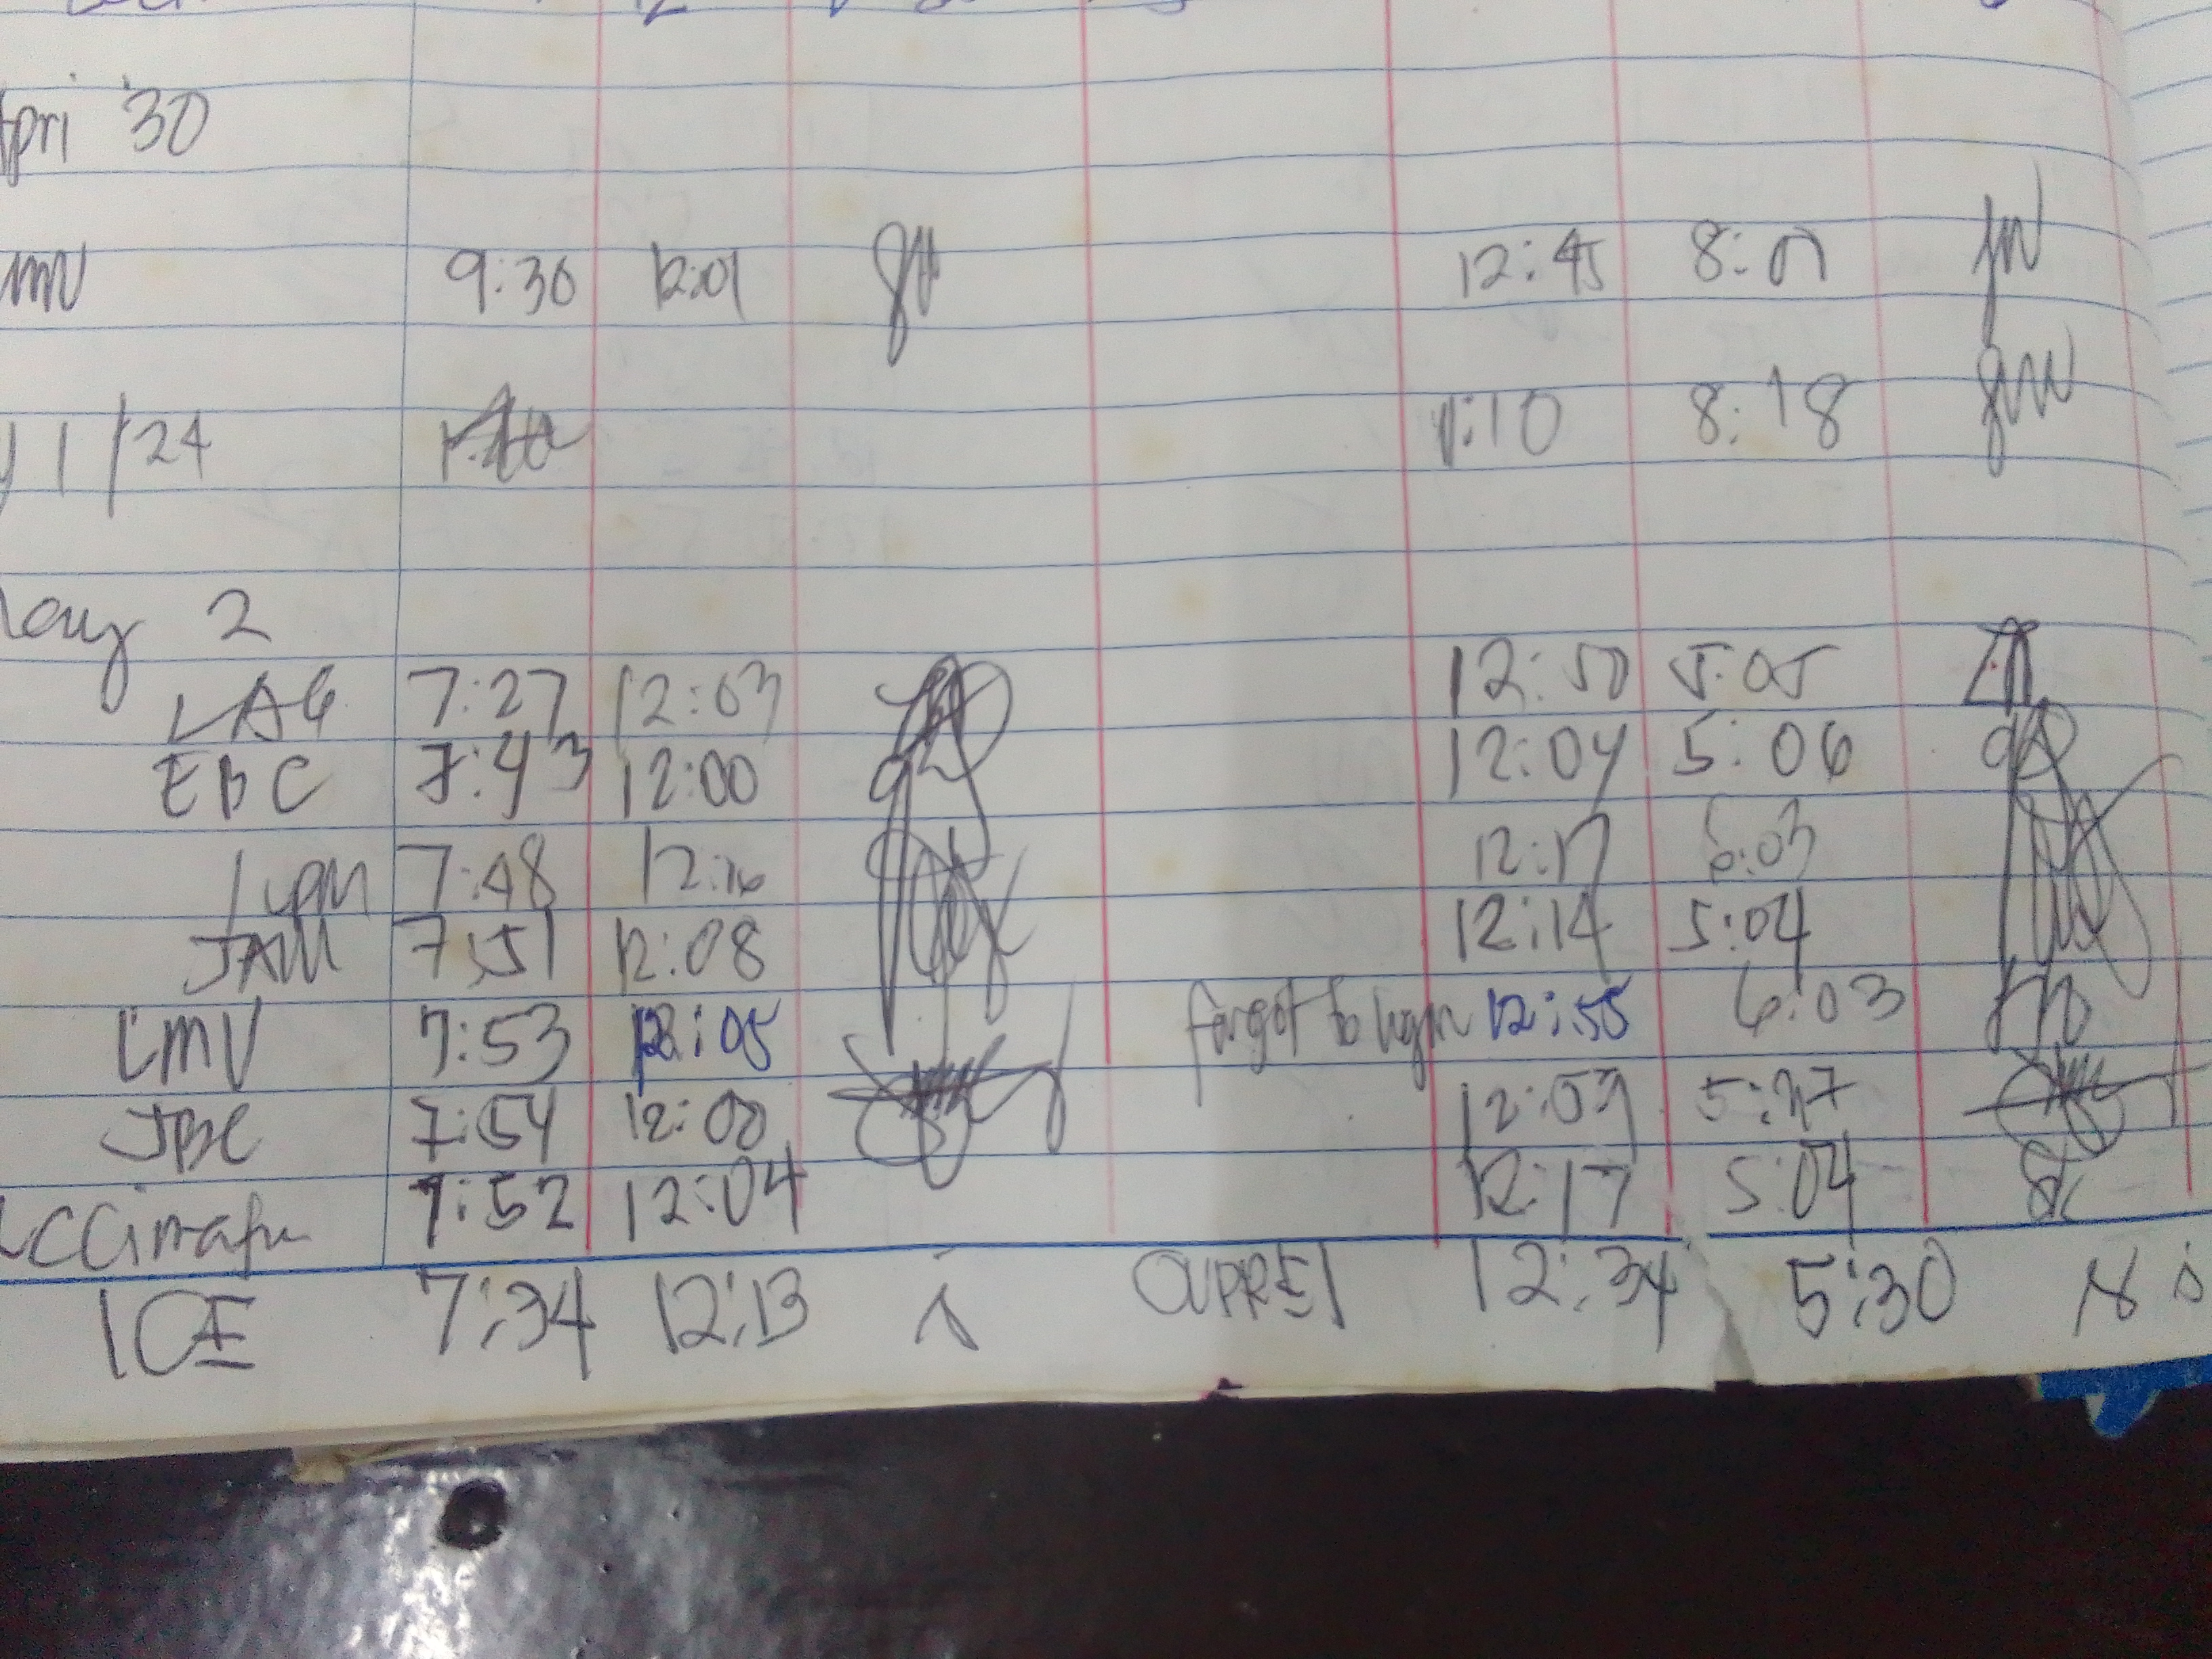 30
9:30 12:01 12:45 8:01
1/24 1:10 8:18
May 2
LAG 7:27 12:03 12:50 5:05
EBC 7:43 12:00 12:04 5:06
7:48 12:16 12:17 5:03
JAM 7:51 12:08 12:14 5:04
LMV 7:53 12:05 forgot to login 12:55 6:03
JBC 7:54 12:00 12:09 5:47
7:52 12:04 12:17 5:04
ICE 7:34 12:13 12:34 5:30